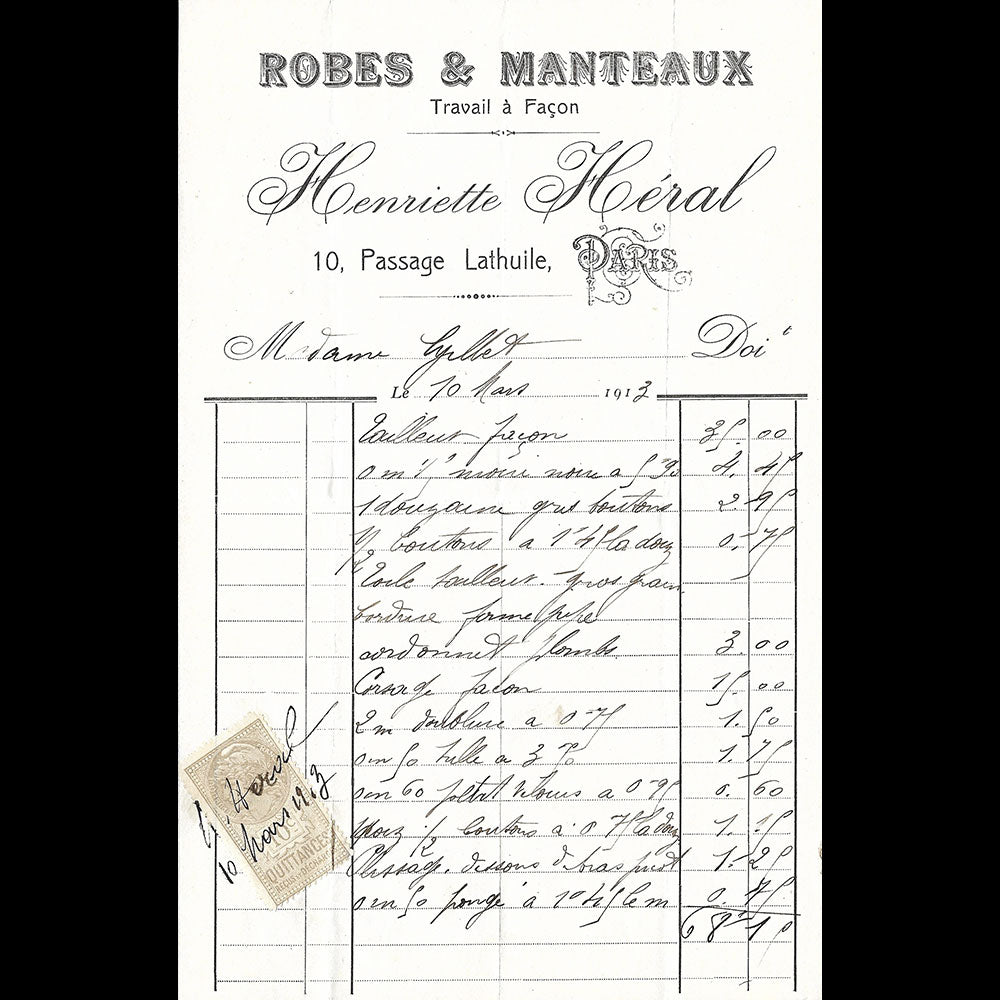 ROBES & MANTEAUX
Travail à Façon
Henriette Héral
10, Passage Lathuile, PARIS
Madame Gillet Doit
Le 10 Mars 1913
Tailleur façon 35.00
0m moire noire a 5 90 4.45
1 douzaine gros boutons 2.95
1/2 boutons a 1 45 la douz 0.75
Toile tailleur. gros grain
bordure forme jupe
cordonnet plombs 3.00
Corsage façon 15.00
2m doublure a 0 75 1.50
0m 50 tulle a 3 50 1.75
0m 60 velours a 0 95 0.60
1/2 boutons a 0 75 la douz 1.15
Plissage, dessous de bras 1.25
0m 50 pongé à 1 45 le m 0.75
68 10
H. Héral
10 Mars 1913
QUITTANCES